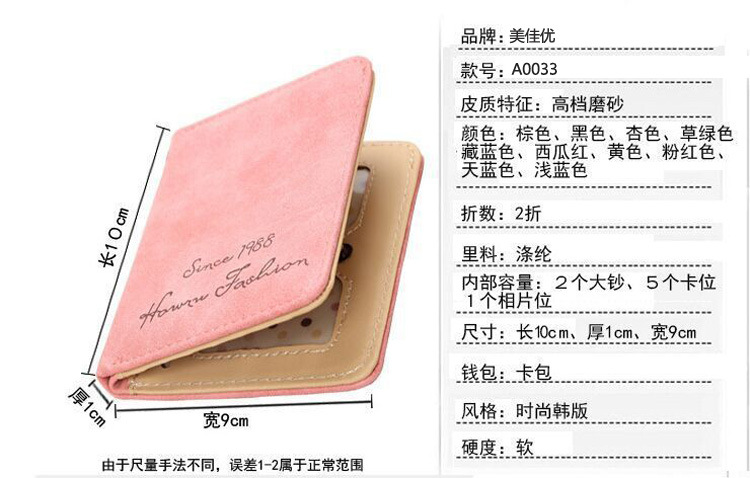 长10cm
Since 1988
Howru Fashion
厚1cm
宽9cm
由于尺量手法不同，误差1-2属于正常范围
品牌：美佳优
款号：A0033
皮质特征：高档磨砂
颜色：棕色、黑色、杏色、草绿色
藏蓝色、西瓜红、黄色、粉红色、
天蓝色、浅蓝色
折数：2折
里料：涤纶
内部容量：2个大钞、5个卡位
1个相片位
尺寸：长10cm、厚1cm、宽9cm
钱包：卡包
风格：时尚韩版
硬度：软